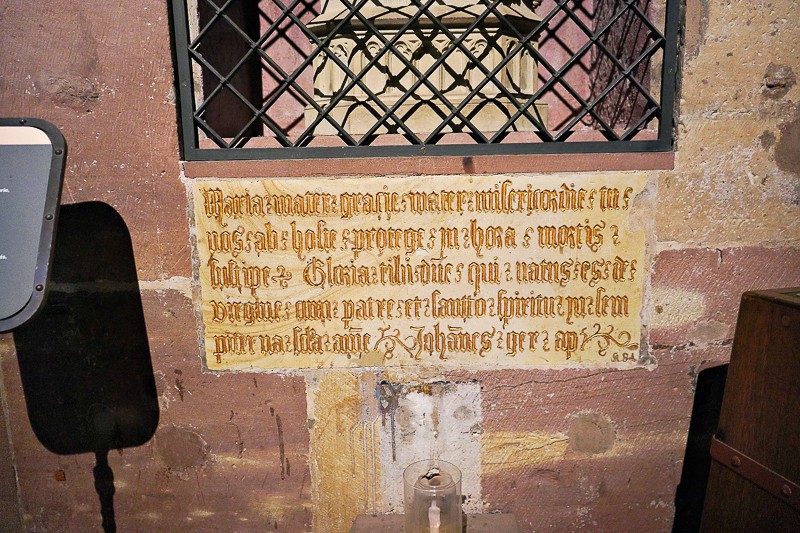 Maria mater gracie mater misericordie tu
nos ab hoste protege in hora mortis
suscipe Gloria tibi dn̄e qui natus es de
virgine cum patre et sancto spiritu in sem
piterna scl̄a amē Johānes ger ap